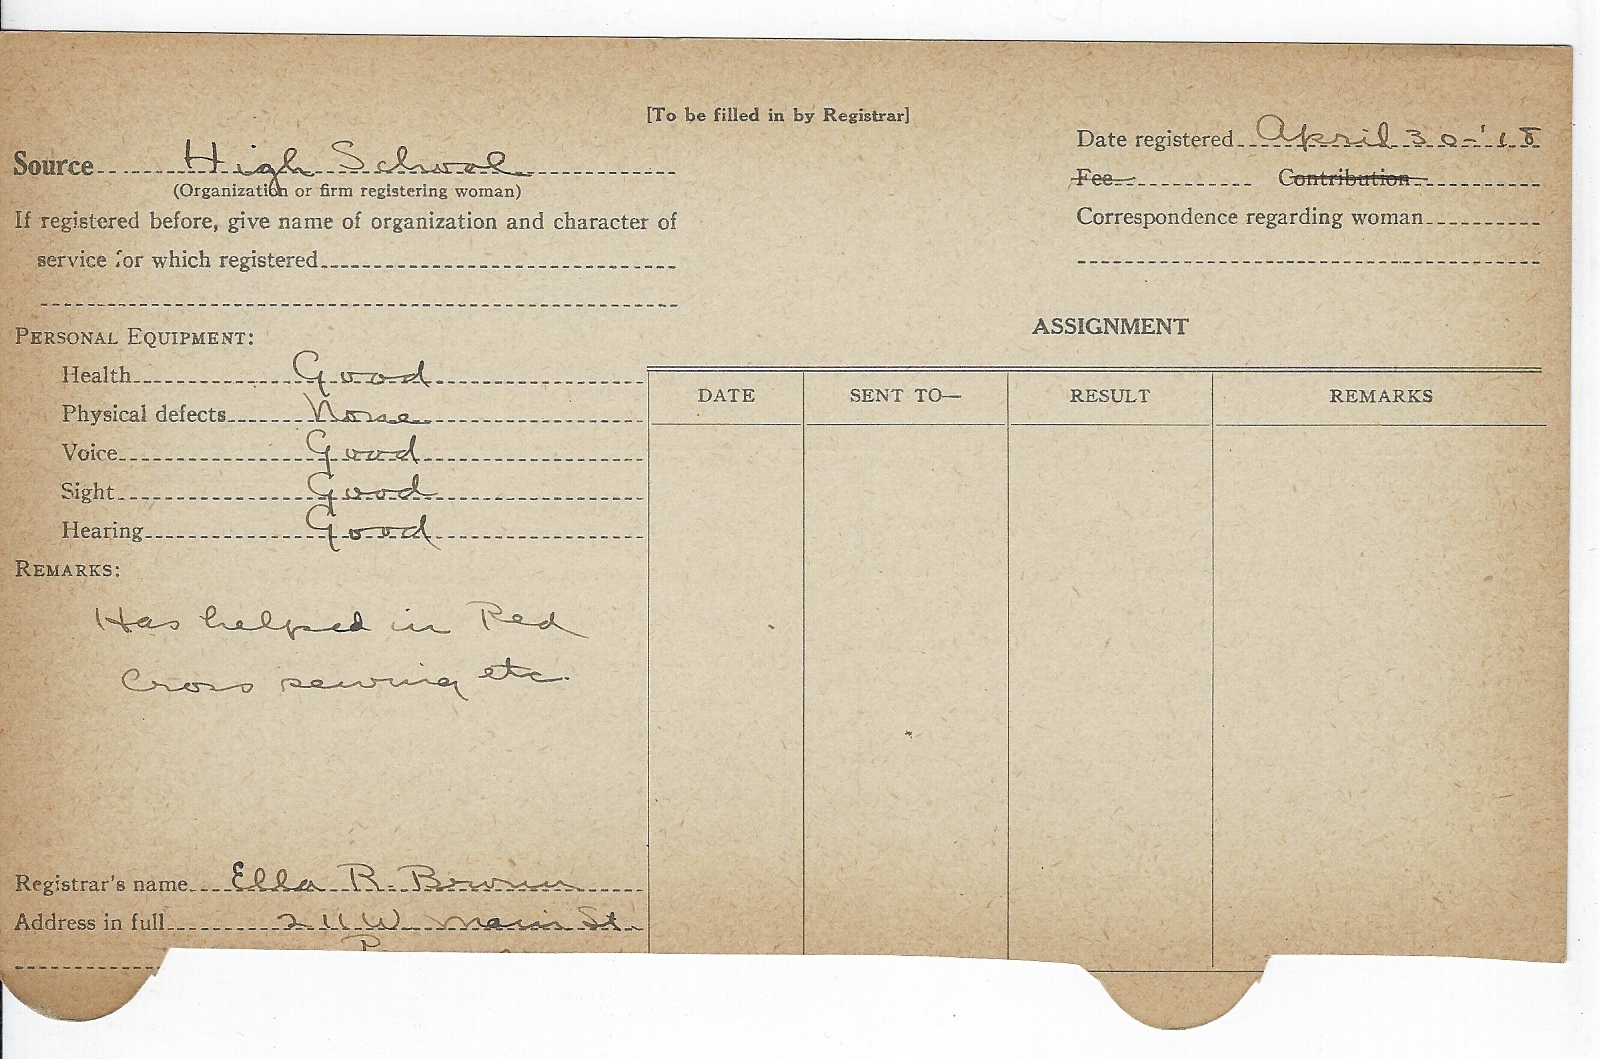 [To be filled in by Registrar]
Source High School
(Organization or firm registering woman)
If registered before, give name of organization and character of
service for which registered
Date registered April 30-'18
Fee Contribution
Correspondence regarding woman
PERSONAL EQUIPMENT:
Health Good
Physical defects None
Voice Good
Sight Good
Hearing Good
REMARKS:
Has helped in Red
Cross sewing etc.
Registrar's name Ella R. Brown
Address in full 211 W Main St.
ASSIGNMENT
DATE SENT TO— RESULT REMARKS